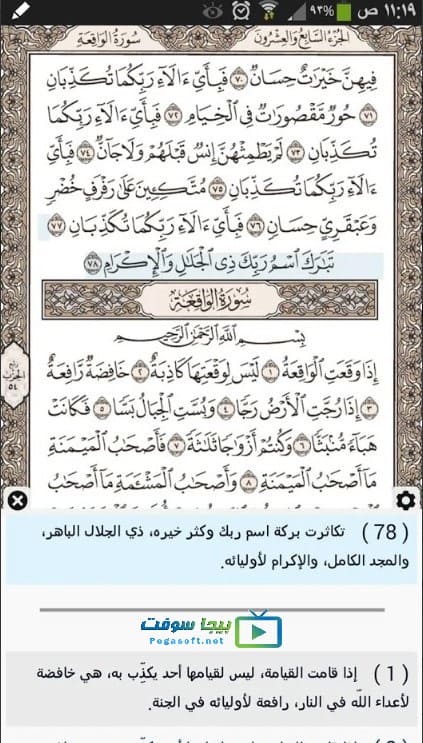 ١١:١٩ ص ٩٣%
سُورَةُ الوَاقِعَة
الجُزءُ السَّابِعُ وَالعِشْرُون
فِيهِنَّ خَيْرَٰتٌ حِسَانٌ ٧٠ فَبِأَيِّ ءَالَآءِ رَبِّكُمَا تُكَذِّبَانِ
٧١ حُورٌ مَّقْصُورَٰتٌ فِي ٱلْخِيَامِ ٧٢ فَبِأَيِّ ءَالَآءِ رَبِّكُمَا
تُكَذِّبَانِ ٧٣ لَمْ يَطْمِثْهُنَّ إِنسٌ قَبْلَهُمْ وَلَا جَآنٌّ ٧٤ فَبِأَيِّ
ءَالَآءِ رَبِّكُمَا تُكَذِّبَانِ ٧٥ مُتَّكِـِٔينَ عَلَىٰ رَفْرَفٍ خُضْرٍ
وَعَبْقَرِيٍّ حِسَانٍ ٧٦ فَبِأَيِّ ءَالَآءِ رَبِّكُمَا تُكَذِّبَانِ ٧٧
تَبَٰرَكَ ٱسْمُ رَبِّكَ ذِي ٱلْجَلَٰلِ وَٱلْإِكْرَامِ ٧٨
سُورَةُ الوَاقِعَة
بِسْمِ ٱللَّهِ ٱلرَّحْمَٰنِ ٱلرَّحِيمِ
إِذَا وَقَعَتِ ٱلْوَاقِعَةُ ١ لَيْسَ لِوَقْعَتِهَا كَاذِبَةٌ ٢ خَافِضَةٌ رَّافِعَةٌ
٣ إِذَا رُجَّتِ ٱلْأَرْضُ رَجًّا ٤ وَبُسَّتِ ٱلْجِبَالُ بَسًّا ٥ فَكَانَتْ
هَبَآءً مُّنۢبَثًّا ٦ وَكُنتُمْ أَزْوَٰجًا ثَلَٰثَةً ٧ فَأَصْحَٰبُ ٱلْمَيْمَنَةِ
مَآ أَصْحَٰبُ ٱلْمَيْمَنَةِ ٨ وَأَصْحَٰبُ ٱلْمَشْـَٔمَةِ مَآ أَصْحَٰبُ
الحزب
٥٤
( 78 ) تكاثرت بركة اسم ربك وكثر خيره، ذي الجلال الباهر،
والمجد الكامل، والإكرام لأوليائه.
بيجا سوفت
Pegasoft.net
( 1 ) إذا قامت القيامة، ليس لقيامها أحد يكذِّب به، هي خافضة
لأعداء اللّه في النار، رافعة لأوليائه في الجنة.